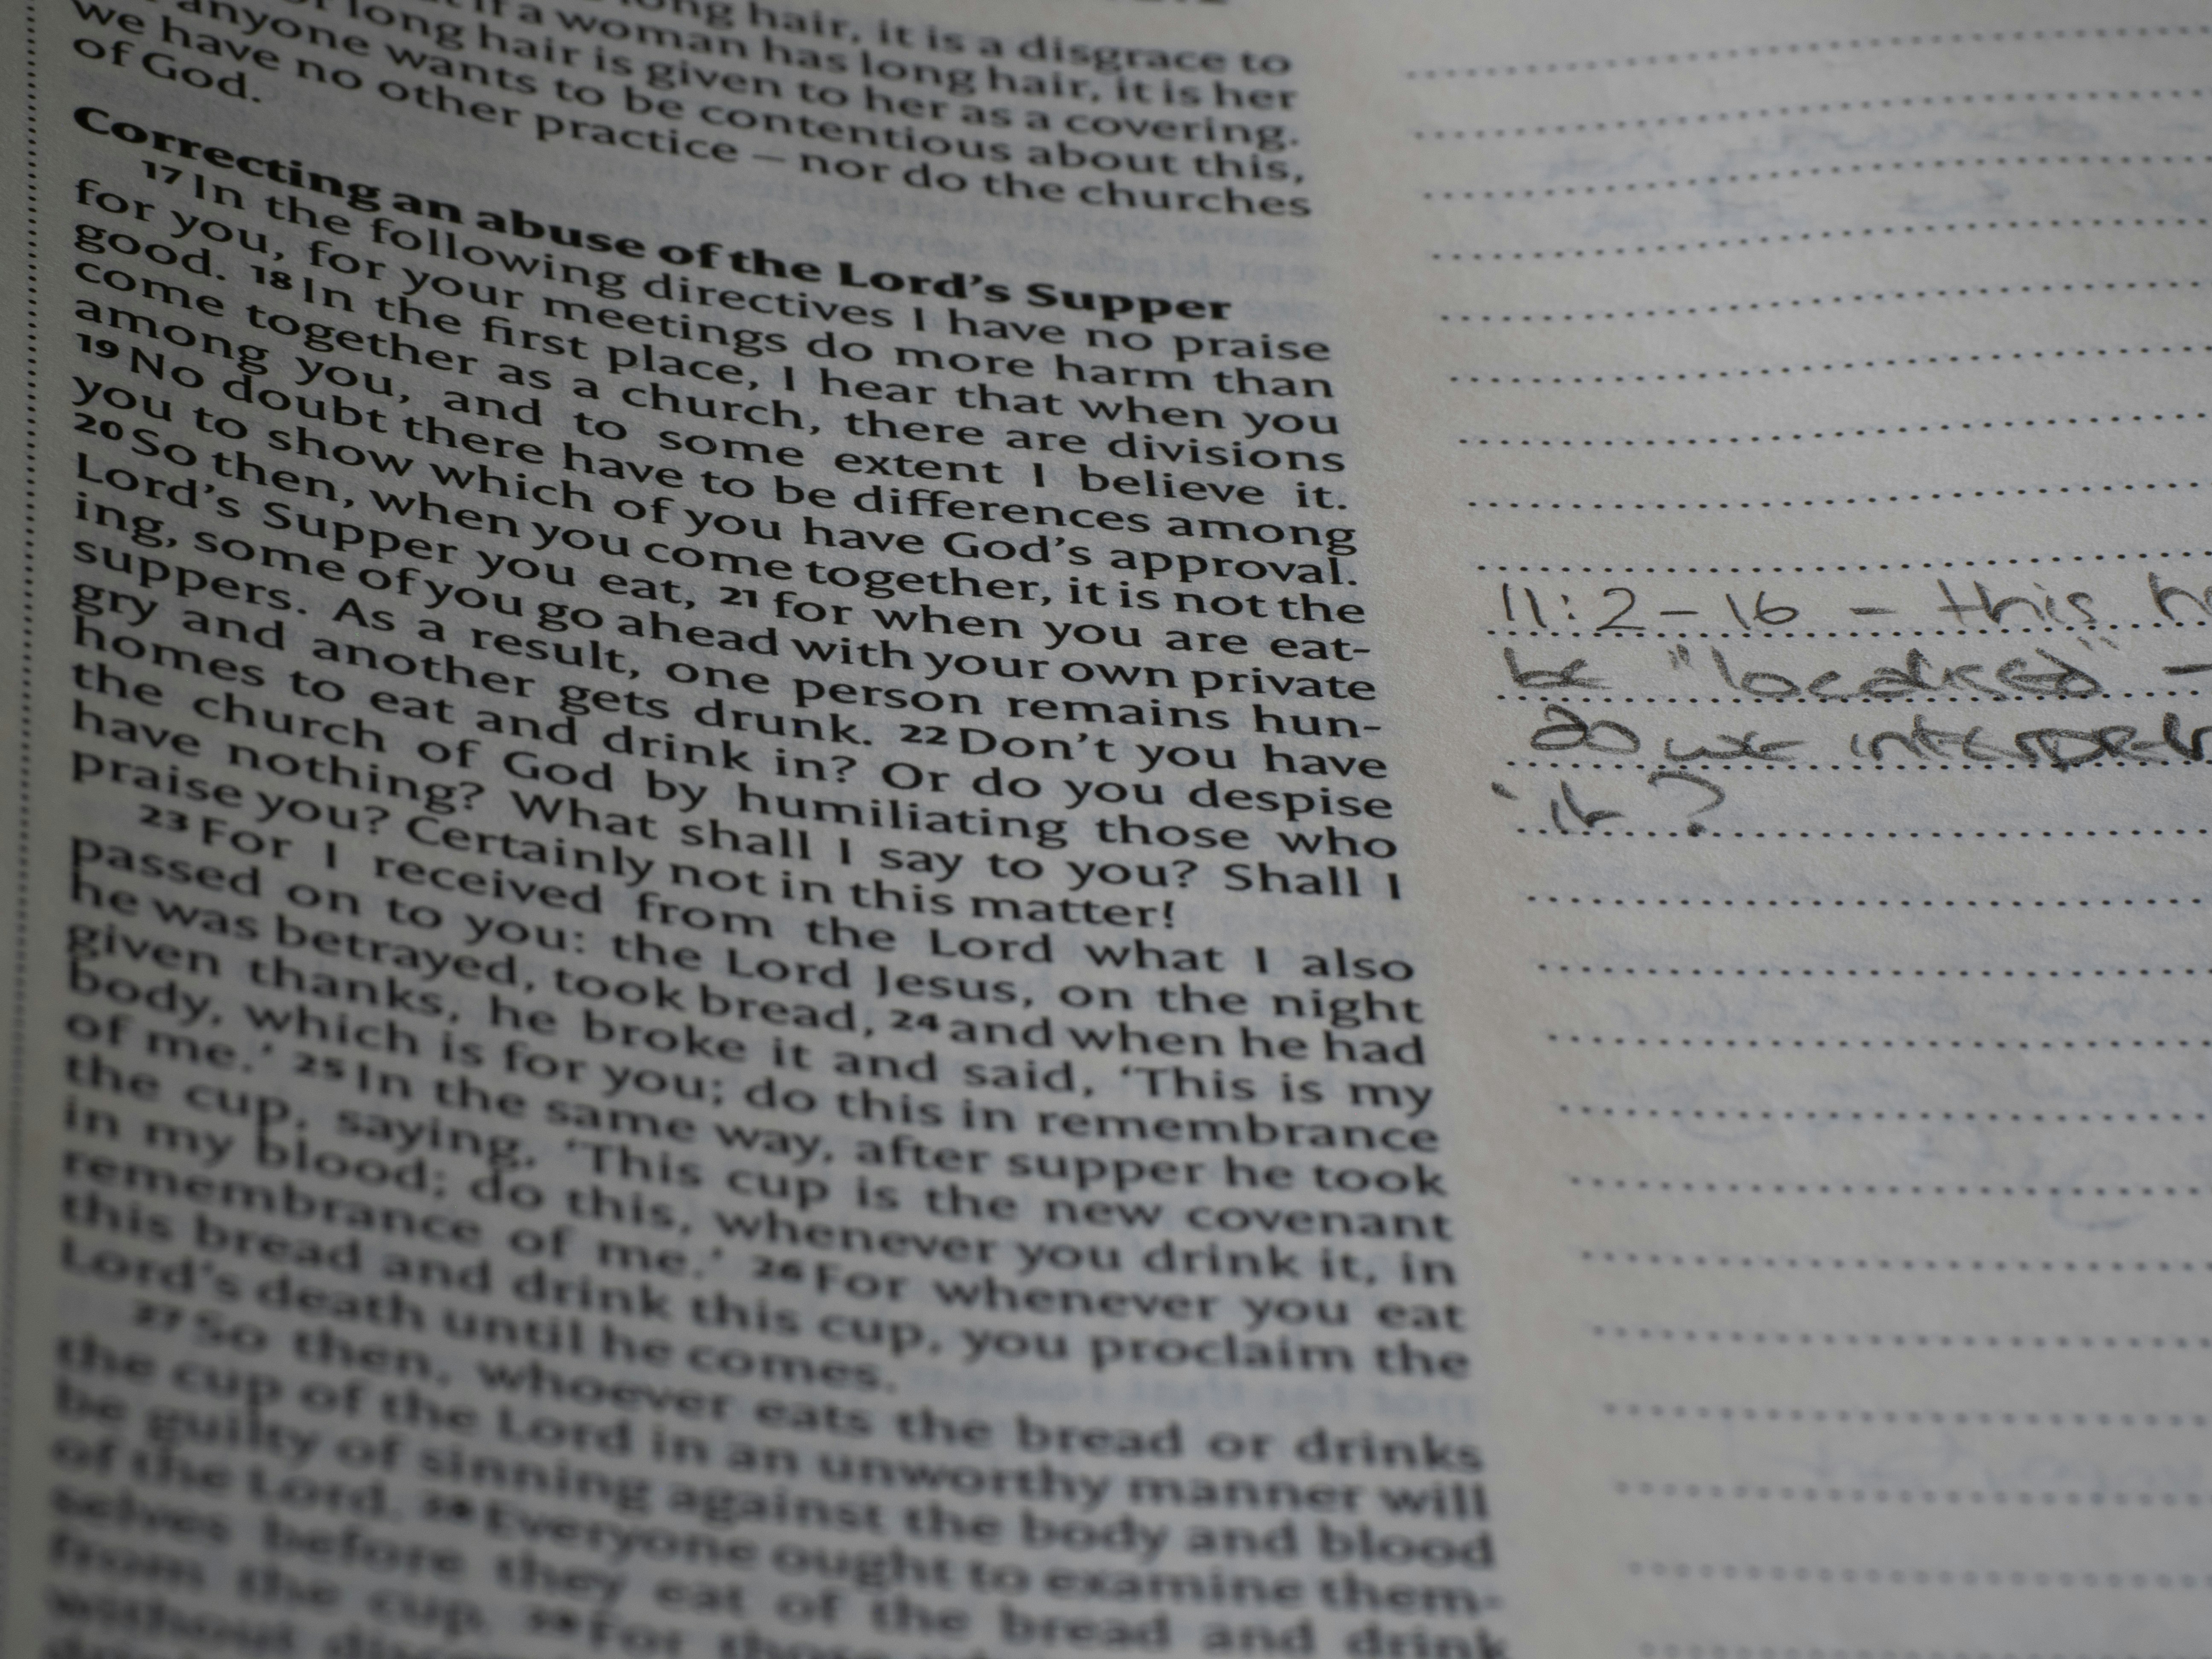 long hair, it is a disgrace to
if a woman has long hair, it is her
long hair is given to her as a covering.
anyone wants to be contentious about this,
we have no other practice – nor do the churches
of God.
Correcting an abuse of the Lord’s Supper
17 In the following directives I have no praise
for you, for your meetings do more harm than
good. 18 In the first place, I hear that when you
come together as a church, there are divisions
among you, and to some extent I believe it.
19 No doubt there have to be differences among
you to show which of you have God’s approval.
20 So then, when you come together, it is not the
Lord’s Supper you eat, 21 for when you are eat-
ing, some of you go ahead with your own private
suppers. As a result, one person remains hun-
gry and another gets drunk. 22 Don’t you have
homes to eat and drink in? Or do you despise
the church of God by humiliating those who
have nothing? What shall I say to you? Shall I
praise you? Certainly not in this matter!
23 For I received from the Lord what I also
passed on to you: the Lord Jesus, on the night
he was betrayed, took bread, 24 and when he had
given thanks, he broke it and said, ‘This is my
body, which is for you; do this in remembrance
of me.’ 25 In the same way, after supper he took
the cup, saying, ‘This cup is the new covenant
in my blood; do this, whenever you drink it, in
remembrance of me.’ 26 For whenever you eat
this bread and drink this cup, you proclaim the
Lord’s death until he comes.
27 So then, whoever eats the bread or drinks
the cup of the Lord in an unworthy manner will
be guilty of sinning against the body and blood
of the Lord. 28 Everyone ought to examine them-
selves before they eat of the bread and drink
from the cup. 29 For those
without
11:2-16 - this
be "localised" -
do we interpret
it?